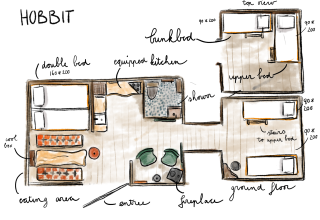 HOBBIT
top view
90 x 200
90 x
200
bunkbed
double bed
160 x 200
equipped kitchen
upper bed
shower
90 x
200
stairs
to upper bed
cool
box
90 x
200
eating area
entree
fireplace
ground floor